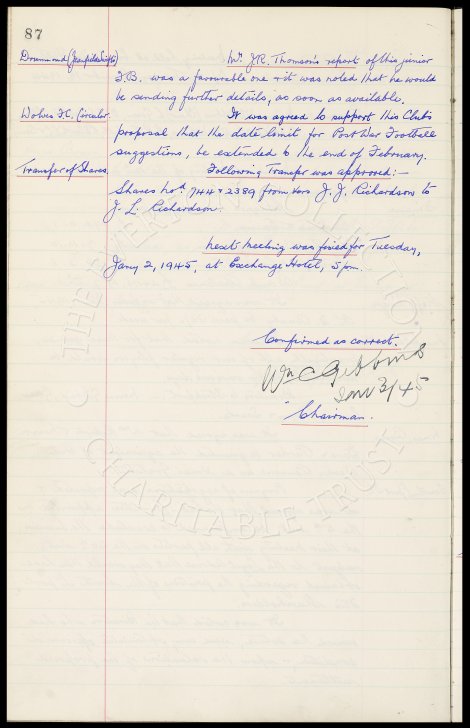 87
Drummond (Jeanfield Swifts) Mr. J.R. Thomson's report of this junior
F.B. was a favourable one & it was noted that he would
be sending further details, as soon as available.
Wolves F.C. Circular. It was agreed to support this Club's
proposal that the date limit for Post War Football
suggestions, be extended to the end of February.
Transfer of Shares Following Transfer was approved:—
Shares nos. 744 & 2389 from J. J. Richardson to
J. L. Richardson.
Next Meeting was fixed for Tuesday,
Jany 2, 1945, at Exchange Hotel, 5 pm.
Confirmed as correct.
Wm C Gibbins
Jan 3/45
Chairman.
© THE EVERTON COLLECTION
CHARITABLE TRUST ©